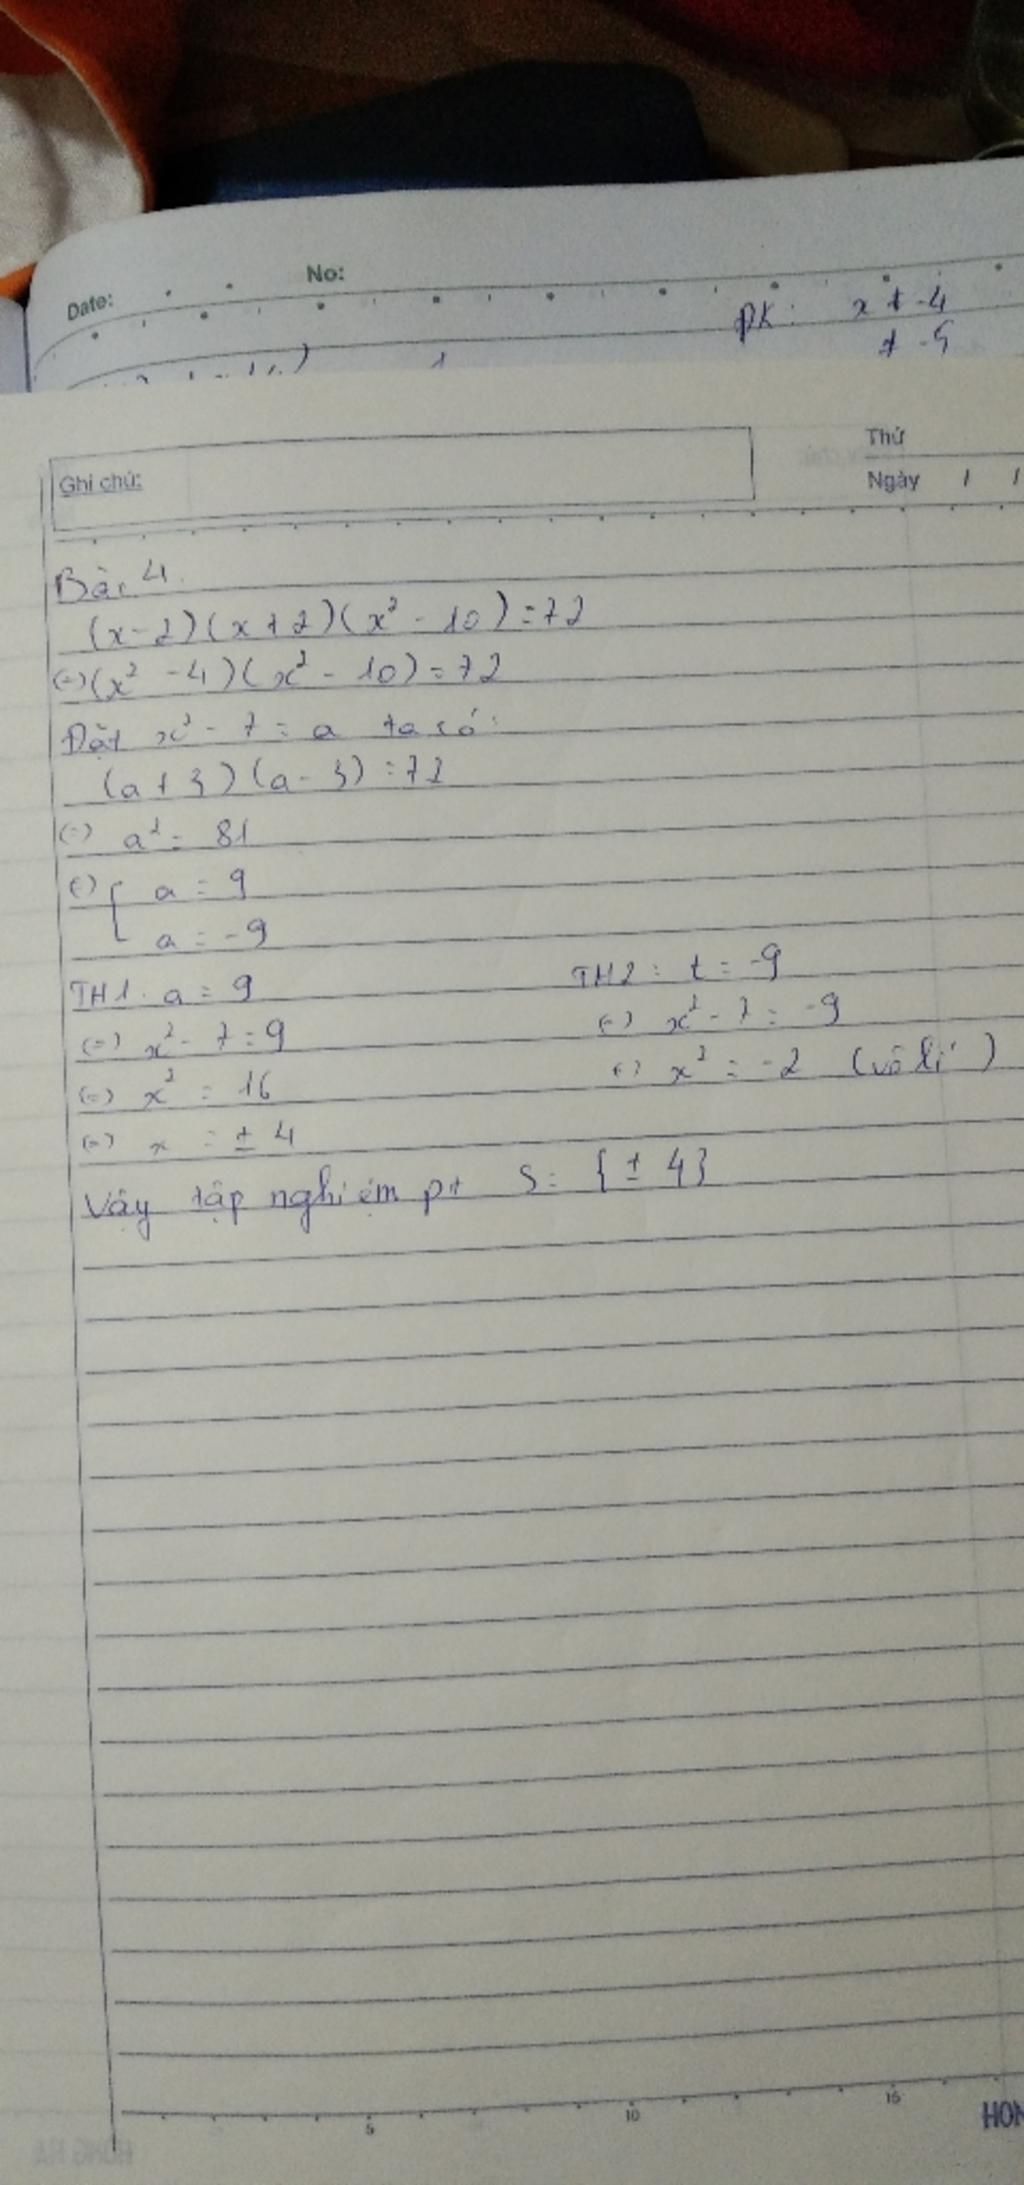 Date: No:
ĐK: x ≠ -4
≠ -5
Ghi chú:
Thứ
Ngày / /
Bài 4.
(x-2)(x+2)(x² - 10) = 72
(=) (x² - 4)(x² - 10) = 72
Đặt x² - 7 = a ta có:
(a + 3)(a - 3) = 72
(=) a² = 81
(=) [ a = 9
a = -9
TH1. a = 9
(=) x² - 7 = 9
(=) x² = 16
(=) x = ± 4
TH2: t = -9
(=) x² - 7 = -9
(=) x² = -2 (vô lí)
Vậy tập nghiệm pt S = {± 4}
5 10 15
HON